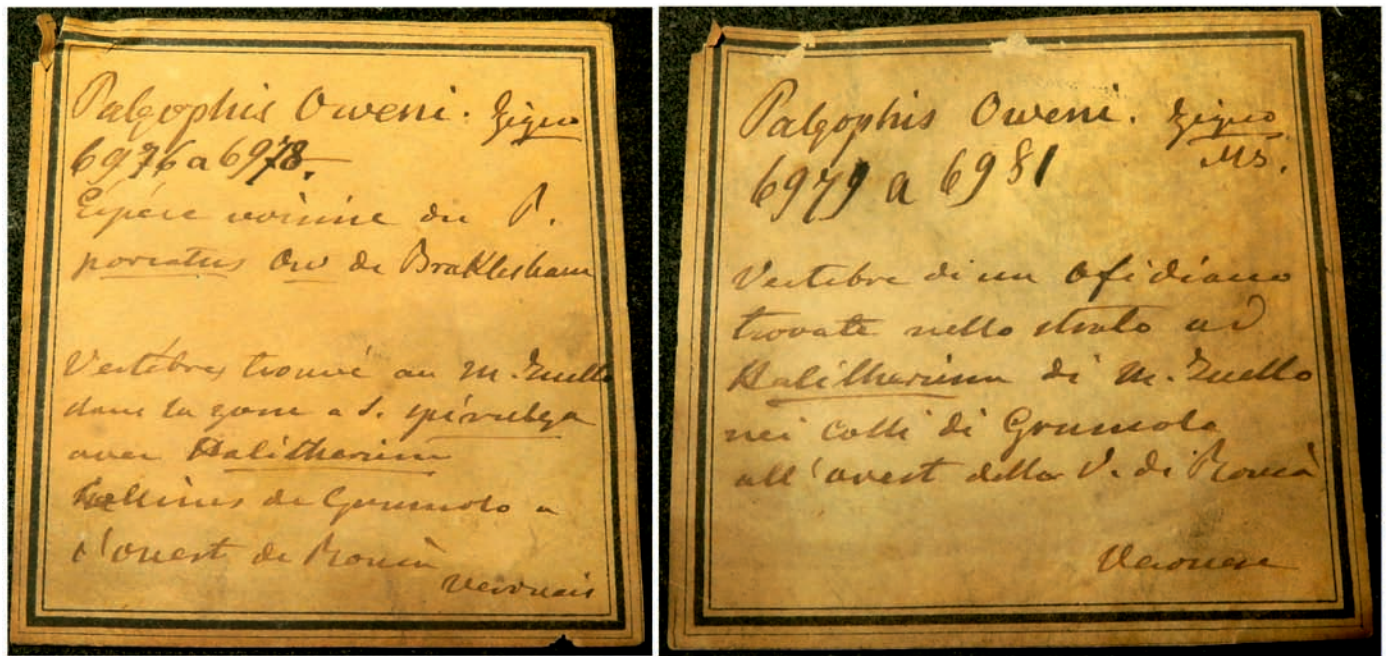 Paleophis Oweni. Zigno
6976 a 6978.
Espèce voisine du P.
porcatus Ow de Braklesham
Vertèbres trouvé au M. Zuello
dans la zone a S. spirulea
avec Halitherium
Collines de Grumolo a
l'ouest de Roncà
Veronais
Paleophis Oweni. Zigno
MS.
6979 a 6981
Vertebre di un Ofidiano
trovate nello strato ad
Halitherium di M. Zuello
nei Colli di Grumolo
all'ovest della V. di Roncà
Veronese